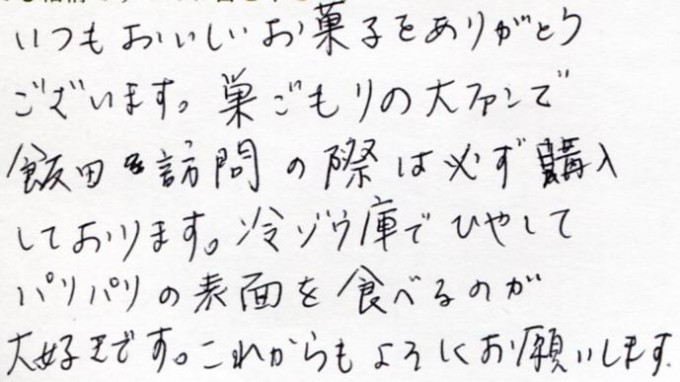 いつもおいしいお菓子をありがとう
ございます。巣ごもりの大ファンで
飯田を訪問の際は必ず購入
しております。冷ゾウ庫でひやして
パリパリの表面を食べるのが
大好きです。これからもよろしくお願いします。